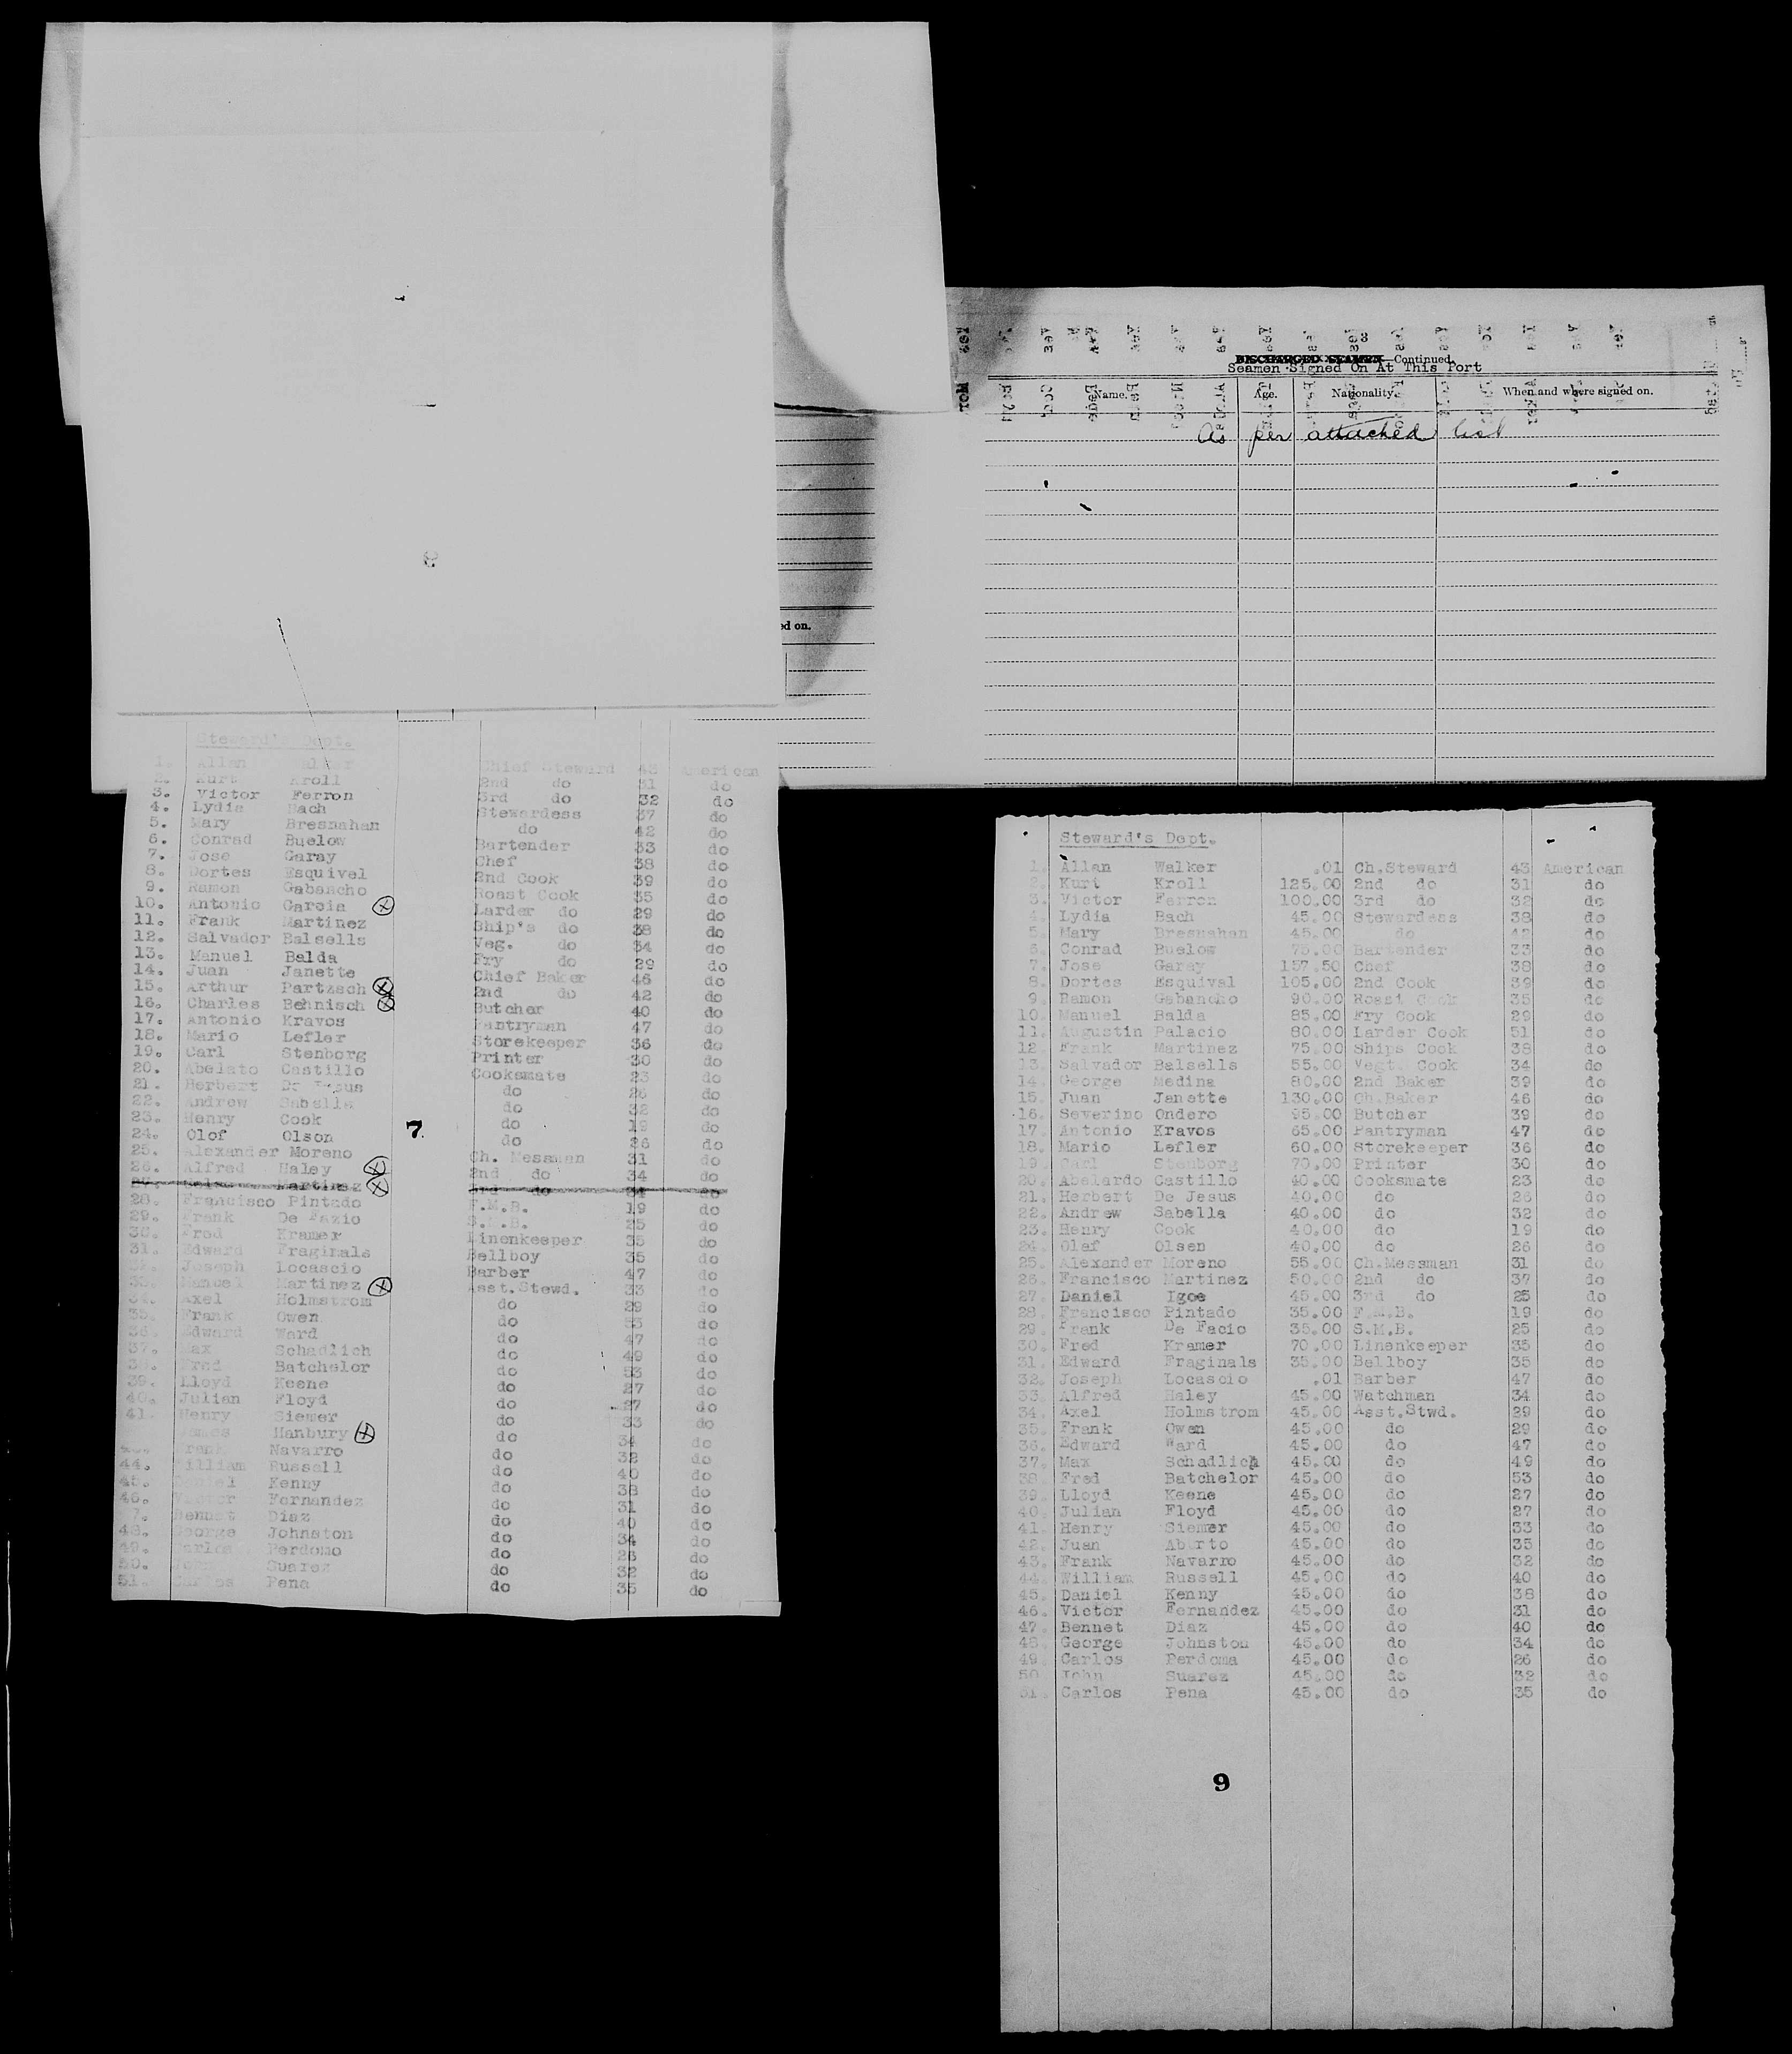 Continued
Seamen Signed On At This Port
Name. Age. Nationality. When and where signed on.
As per attached list
ed on.
Steward's Dept.
1. Allan Chief Steward 43 American
2. Kurt Kroll 2nd do 31 do
3. Victor Ferron 3rd do 32 do
4. Lydia Bach Stewardess 37 do
5. Mary Bresnahan do 42 do
6. Conrad Buelow Bartender 33 do
7. Jose Garay Chef 38 do
8. Dortes Esquivel 2nd Cook 39 do
9. Ramon Gabancho Roast Cook 35 do
10. Antonio Garcia Larder do 29 do
11. Frank Martinez Ship's do 38 do
12. Salvador Balsells Veg. do 34 do
13. Manuel Balda Fry do 29 do
14. Juan Janette Chief Baker 46 do
15. Arthur Partzsch 2nd do 42 do
16. Charles Behnisch Butcher 40 do
17. Antonio Kravos Pantryman 47 do
18. Mario Lefler Storekeeper 36 do
19. Carl Stenborg Printer 30 do
20. Abelato Castillo Cooksmate 23 do
21. Herbert De Jesus do 26 do
22. Andrew Sabella do 32 do
23. Henry Cook do 19 do
24. Olof Olson do 26 do
7.
25. Alexander Moreno Ch. Messman 31 do
26. Alfred Haley 2nd do 34 do
27. Martinez 3rd do do
28. Francisco Pintado F.M.B. 19 do
29. Frank De Fazio S.M.B. 25 do
30. Fred Kramer Linenkeeper 35 do
31. Edward Fraginals Bellboy 35 do
32. Joseph Locascio Barber 47 do
33. Manuel Martinez Asst.Stewd. 33 do
34. Axel Holmstrom do 29 do
35. Frank Owen do do
36. Edward Ward do 47 do
37. Max Schadlich do 49 do
38. Fred Batchelor do 53 do
39. Lloyd Keene do 27 do
40. Julian Floyd do 27 do
41. Henry Siemer do 33 do
James Hanbury do 34 do
Frank Navarro do 32 do
44. William Russell do 40 do
45. Daniel Kenny do 38 do
46. Victor Fernandez do 31 do
7. Bennet Diaz do 40 do
48. George Johnston do 34 do
49. Carlos Perdomo do 26 do
50. John Suarez do 32 do
51. Carlos Pena do 35 do
Steward's Dept.
1. Allan Walker .01 Ch.Steward 43 American
2. Kurt Kroll 125.00 2nd do 31 do
3. Victor Ferron 100.00 3rd do 32 do
4. Lydia Bach 45.00 Stewardess 38 do
5. Mary Bresnahan 45.00 do 42 do
6. Conrad Buelow 75.00 Bartender 33 do
7. Jose Garay 157.50 Chef 38 do
8. Dortes Esquival 105.00 2nd Cook 39 do
9. Ramon Gabancho 90.00 Roast Cook 35 do
10. Manuel Balda 85.00 Fry Cook 29 do
11. Augustin Palacio 80.00 Larder Cook 51 do
12 Frank Martinez 75.00 Ships Cook 38 do
13. Salvador Balsells 55.00 Vegt. Cook 34 do
14 George Medina 80.00 2nd Baker 39 do
15. Juan Janette 130.00 Ch.Baker 46 do
16. Severino Ondero 95.00 Butcher 39 do
17. Antonio Kravos 65.00 Pantryman 47 do
18. Mario Lefler 60.00 Storekeeper 36 do
19. Carl Stenborg 70.00 Printer 30 do
20. Abelardo Castillo 40.00 Cooksmate 23 do
21. Herbert De Jesus 40.00 do 26 do
22. Andrew Sabella 40.00 do 32 do
23. Henry Cook 40.00 do 19 do
24. Olaf Olsen 40.00 do 26 do
25. Alexander Moreno 55.00 Ch.Messman 31 do
26. Francisco Martinez 50.00 2nd do 37 do
27. Daniel Igoe 45.00 3rd do 25 do
28. Francisco Pintado 35.00 F.M.B. 19 do
29. Frank De Facio 35.00 S.M.B. 25 do
30. Fred Kramer 70.00 Linenkeeper 35 do
31. Edward Fraginals 35.00 Bellboy 35 do
32. Joseph Locascio .01 Barber 47 do
33. Alfred Haley 45.00 Watchman 34 do
34. Axel Holmstrom 45.00 Asst.Stwd. 29 do
35. Frank Owen 45.00 do 29 do
36. Edward Ward 45.00 do 47 do
37. Max Schadlich 45.00 do 49 do
38. Fred Batchelor 45.00 do 53 do
39. Lloyd Keene 45.00 do 27 do
40. Julian Floyd 45.00 do 27 do
41. Henry Siemer 45.00 do 33 do
42. Juan 45.00 do 35 do
43. Frank Navarro 45.00 do 32 do
44. William Russell 45.00 do 40 do
45. Daniel Kenny 45.00 do 38 do
46. Victor Fernandez 45.00 do 31 do
47. Bennet Diaz 45.00 do 40 do
48. George Johnston 45.00 do 34 do
49. Carlos Perdoma 45.00 do 26 do
50. John Suarez 45.00 do 32 do
51. Carlos Pena 45.00 do 35 do
9